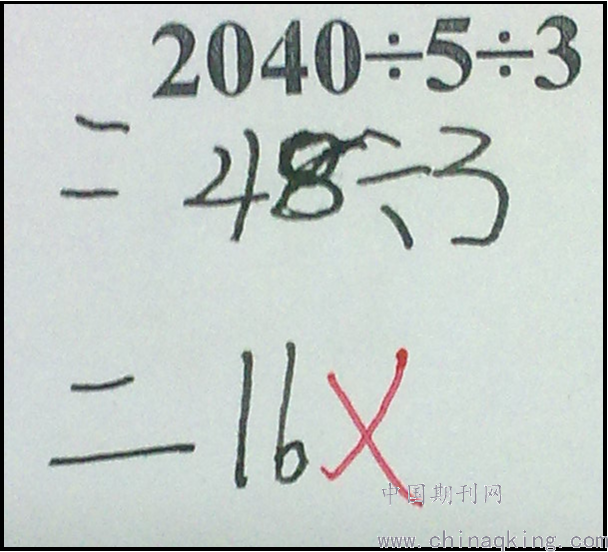 2040÷5÷3
= 48÷3
= 16 X
中国期刊网
www.chinaqking.com